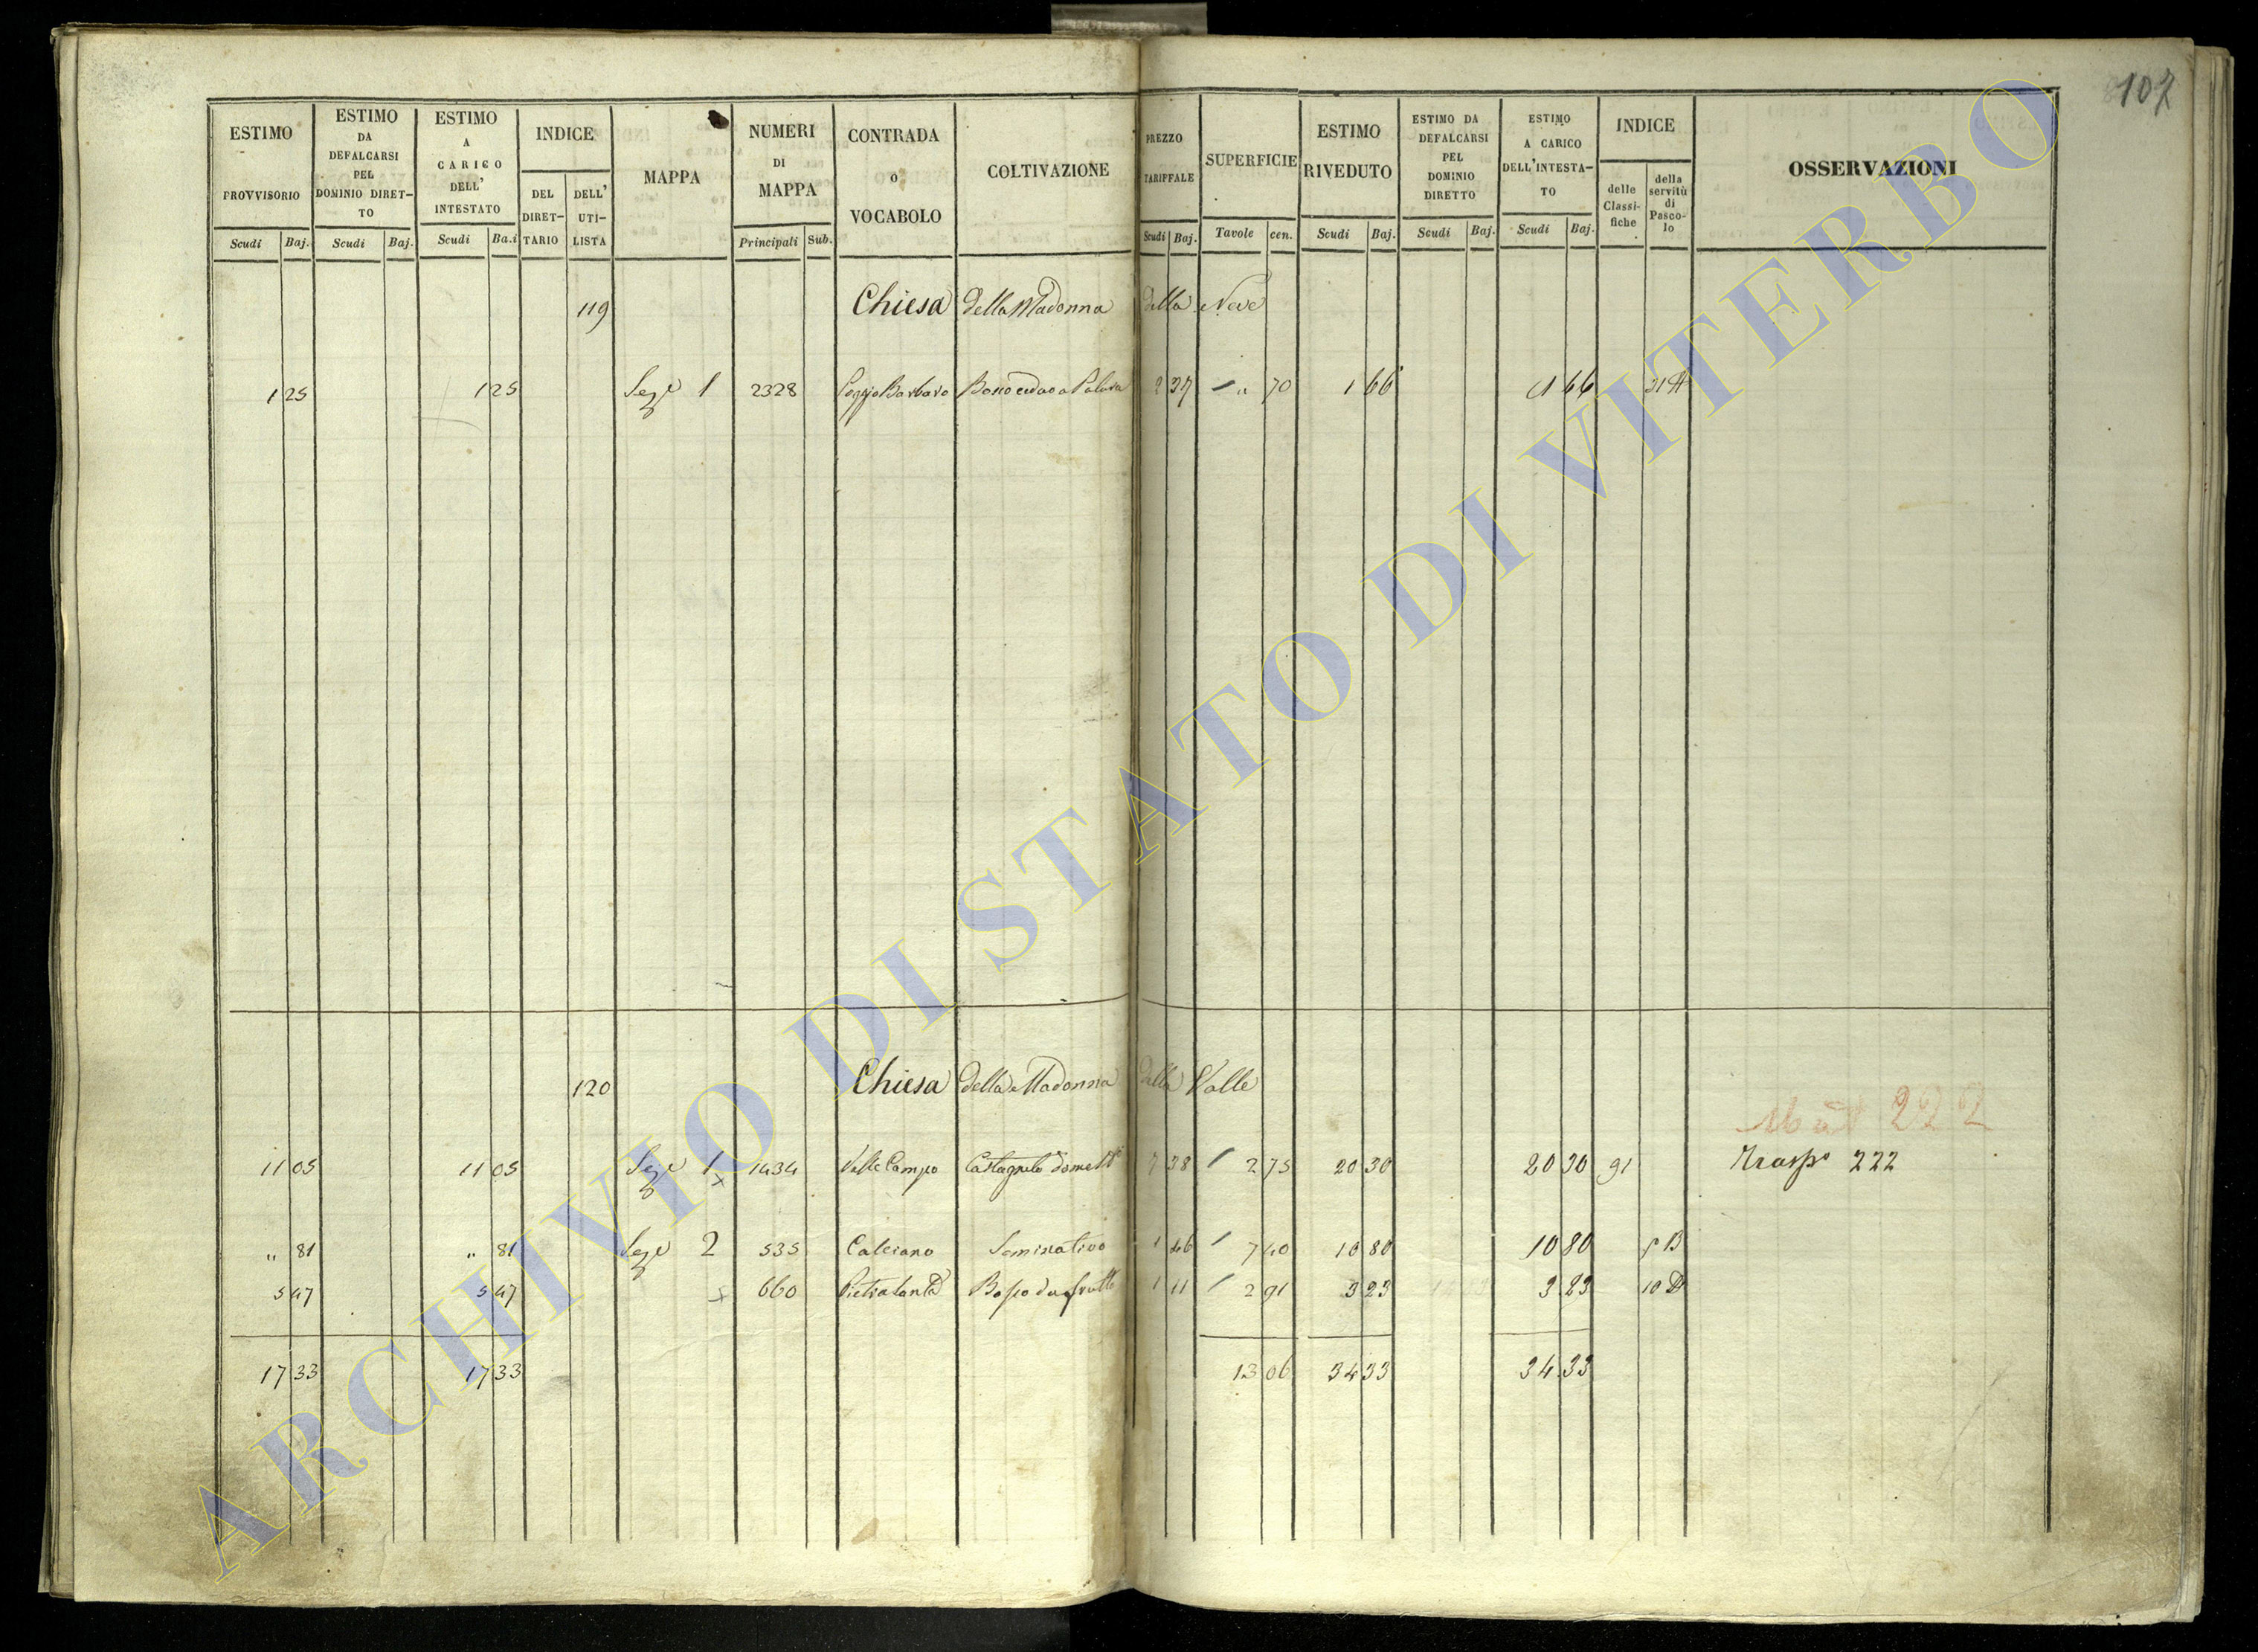 107
ESTIMO PROVVISORIO | ESTIMO DA DEFALCARSI PEL DOMINIO DIRET-TO | ESTIMO A CARICO DELL' INTESTATO | INDICE | MAPPA | NUMERI DI MAPPA | CONTRADA O VOCABOLO | COLTIVAZIONE | PREZZO TARIFFALE | SUPERFICIE | ESTIMO RIVEDUTO | ESTIMO DA DEFALCARSI PEL DOMINIO DIRETTO | ESTIMO A CARICO DELL'INTESTA-TO | INDICE | OSSERVAZIONI
DEL DIRET-TARIO | DELL' UTI-LISTA | delle Classi-fiche | della servitù di Pasco-lo
Scudi | Baj. | Scudi | Baj. | Scudi | Ba.i | Principali | Sub. | Scudi | Baj. | Tavole | cen. | Scudi | Baj. | Scudi | Baj. | Scudi | Baj.
119 Chiesa della Madonna della Neve
1 25 | 1 25 | Sez.e 1 | 2328 | Poggio Barbaro | Bosco ceduo a Palina | 2 37 | " 70 | 1 66 | 1 66
120 Chiesa della Madonna della Valle
222
11 05 | 11 05 | Sez.e 1 | 1434 | Valle Campo | Castagneto | 7 38 | 2 75 | 20 30 | 20 30 | 91 | Trasp.o 222
" 81 | " 81 | Sez.e 2 | 535 | Calciano | Seminativo | 1 46 | 7 40 | 10 80 | 10 80 | 5 B
5 47 | 5 47 | 660 | Pietra | Bosco da frutto | 1 11 | 2 91 | 3 23 | 3 23 | 10
17 33 | 17 33 | 13 06 | 34 33 | 34 33
ARCHIVIO DI STATO DI VITERBO